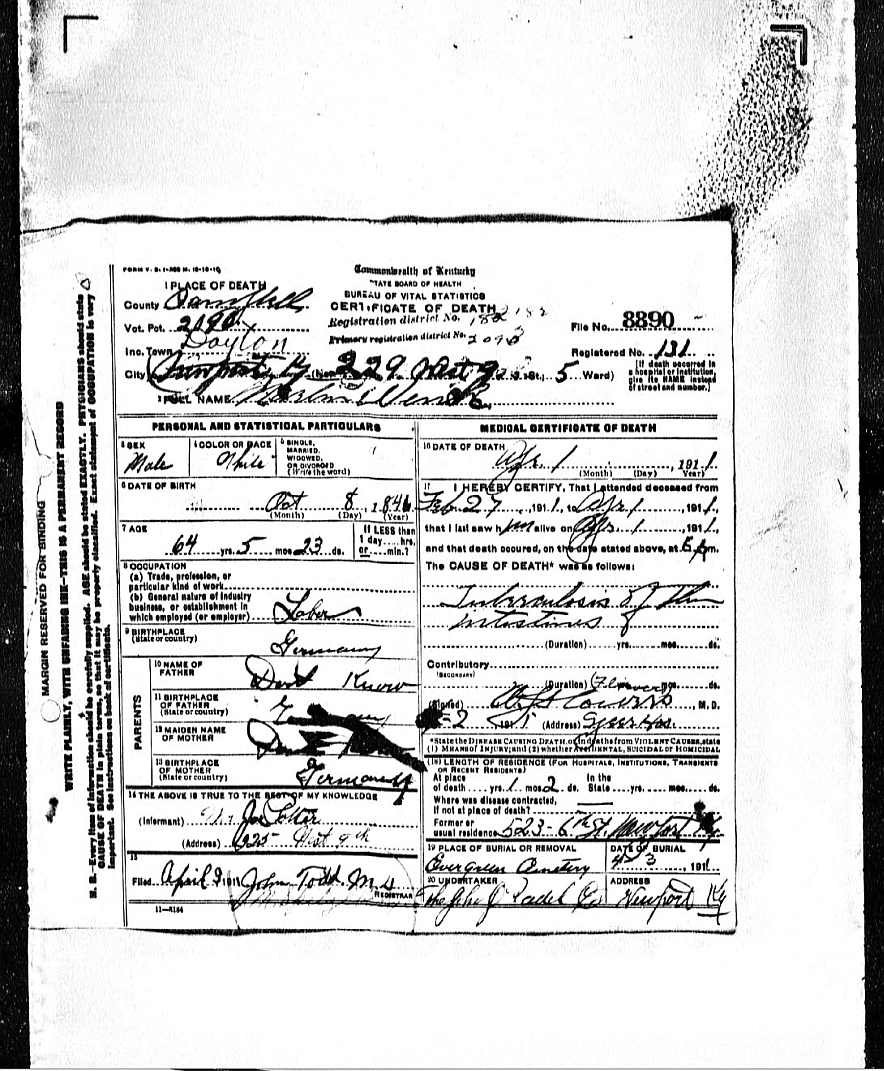 FORM V. S. 1-
Commonwealth of Kentucky
STATE BOARD OF HEALTH
BUREAU OF VITAL STATISTICS
CERTIFICATE OF DEATH
1 PLACE OF DEATH
County Campbell
Vot. Pct. 2090
Registration district No. 182
Inc. Town Dayton
Primary registration district No. 2095
File No. 8890
Registered No. 131
City Newport Ky (No. 229 West 9 St., 5 Ward)
[If death occurred in a hospital or institution, give its NAME instead of street and number.]
2 FULL NAME Martin
PERSONAL AND STATISTICAL PARTICULARS
3 SEX Male
4 COLOR OR RACE White
5 SINGLE, MARRIED, WIDOWED, OR DIVORCED (Write the word)
6 DATE OF BIRTH
Oct 8, 1846
(Month) (Day) (Year)
7 AGE
64 yrs. 5 mos. 23 ds.
If LESS than 1 day....hrs. or....min.?
8 OCCUPATION
(a) Trade, profession, or particular kind of work
(b) General nature of industry business, or establishment in which employed (or employer) Labor
9 BIRTHPLACE (State or country) Germany
PARENTS
10 NAME OF FATHER Dont Know
11 BIRTHPLACE OF FATHER (State or country)
12 MAIDEN NAME OF MOTHER Dont
13 BIRTHPLACE OF MOTHER (State or country) Germany
14 THE ABOVE IS TRUE TO THE BEST OF MY KNOWLEDGE
(Informant)
(Address) West 9th
15
Filed April 3 1911 John Todd M.D.
REGISTRAR
11-8184
MEDICAL CERTIFICATE OF DEATH
16 DATE OF DEATH
Apr. 1, 1911
(Month) (Day) (Year)
17 I HEREBY CERTIFY, That I attended deceased from
Feb 27, 1911, to Apr 1, 1911,
that I last saw him alive on Apr 1, 1911,
and that death occured, on the date stated above, at m.
The CAUSE OF DEATH* was as follows:
Tuberculosis of the
intestines
(Duration) yrs. mos. ds.
Contributory
(SECONDARY)
(Duration) mos. ds.
(Signed) M. D.
2 1911 (Address)
*State the DISEASE CAUSING DEATH, or, in deaths from VIOLENT CAUSES, state (1) MEANS OF INJURY; and (2) whether ACCIDENTAL, SUICIDAL OR HOMICIDAL
(18) LENGTH OF RESIDENCE (FOR HOSPITALS, INSTITUTIONS, TRANSIENTS OR RECENT RESIDENTS)
At place of death yrs. 1 mos. 2 ds. In the State yrs. mos. ds.
Where was disease contracted, if not at place of death?
Former or usual residence 523-6th St. Newport Ky.
19 PLACE OF BURIAL OR REMOVAL
Evergreen Cemetery
DATE OF BURIAL
4 3, 1911
20 UNDERTAKER
The John J Radel Co
ADDRESS
Newport Ky
MARGIN RESERVED FOR BINDING
WRITE PLAINLY, WITH UNFADING INK—THIS IS A PERMANENT RECORD
N. B.—Every item of information should be carefully supplied. AGE should be stated EXACTLY. PHYSICIANS should state
CAUSE OF DEATH in plain terms, so that it may be properly classified. Exact statement of OCCUPATION is very
important. See instructions on back of certificate.